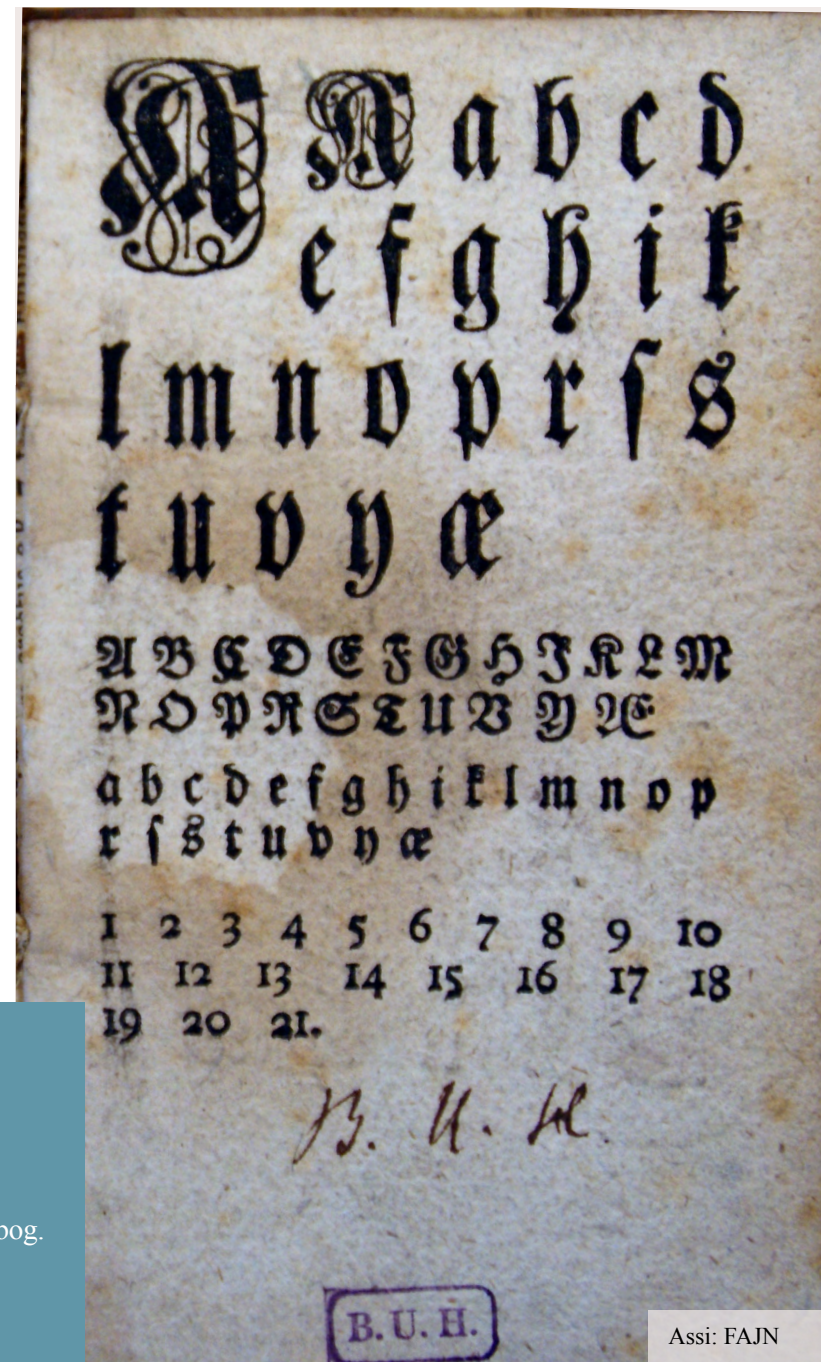 A A a b c d
e f g h i k
l m n o p r ſ s
t u v y æ
A B C D E F G H I K L M
N O P R S T U V Y Æ
a b c d e f g h i k l m n o p
r ſ s t u v y æ
1 2 3 4 5 6 7 8 9 10
11 12 13 14 15 16 17 18
19 20 21.
B. U. H
bog.
B. U. H.
Assi: FAJN